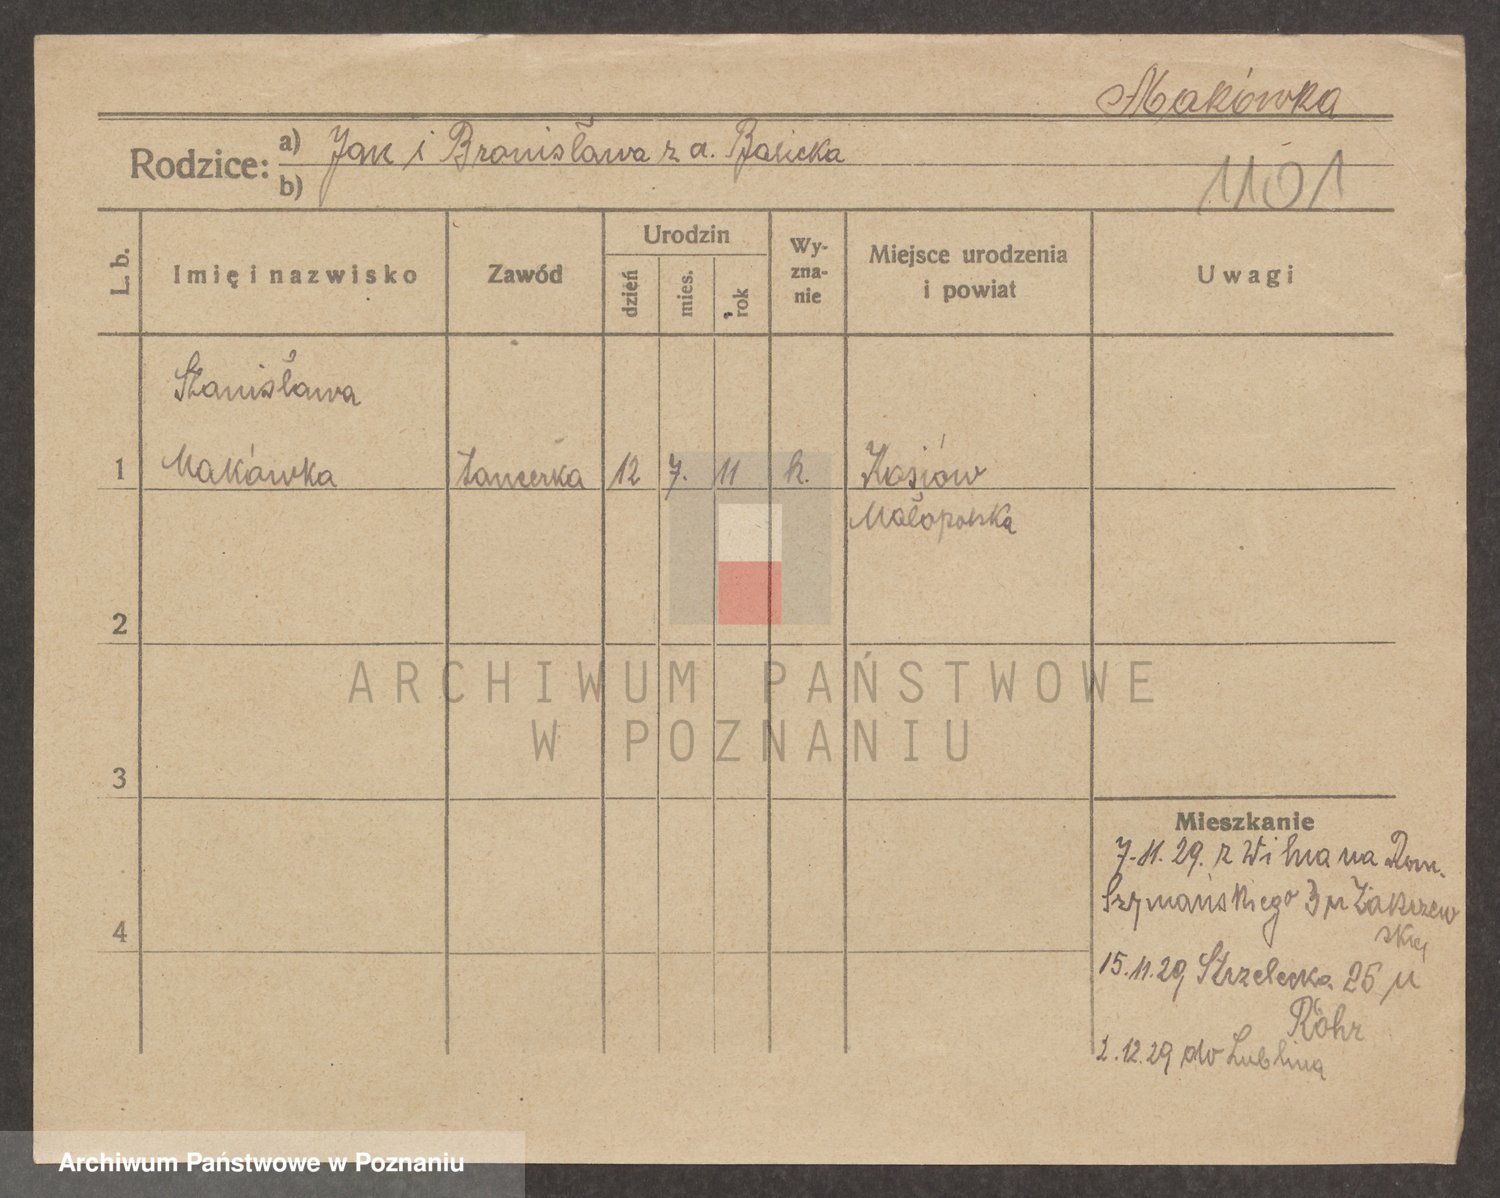 Makówka
Rodzice: a) Jan i Bronisława z d. Balicka
b)
1101
L. b. Imię i nazwisko Zawód Urodzin dzień mies. rok Wy-zna-nie Miejsce urodzenia i powiat Uwagi
Stanisława
1 Makówka tancerka 12 7. 11 k. Kosów
Małopolska
2
ARCHIWUM PAŃSTWOWE
W POZNANIU
3
Mieszkanie
7.11.29. z Wilna na Rom.
Szymańskiego 3 u Zakrzew
skiej
4
15.11.29 Strzelecka 26 u
Röhr
2.12.29 do Lublina
Archiwum Państwowe w Poznaniu